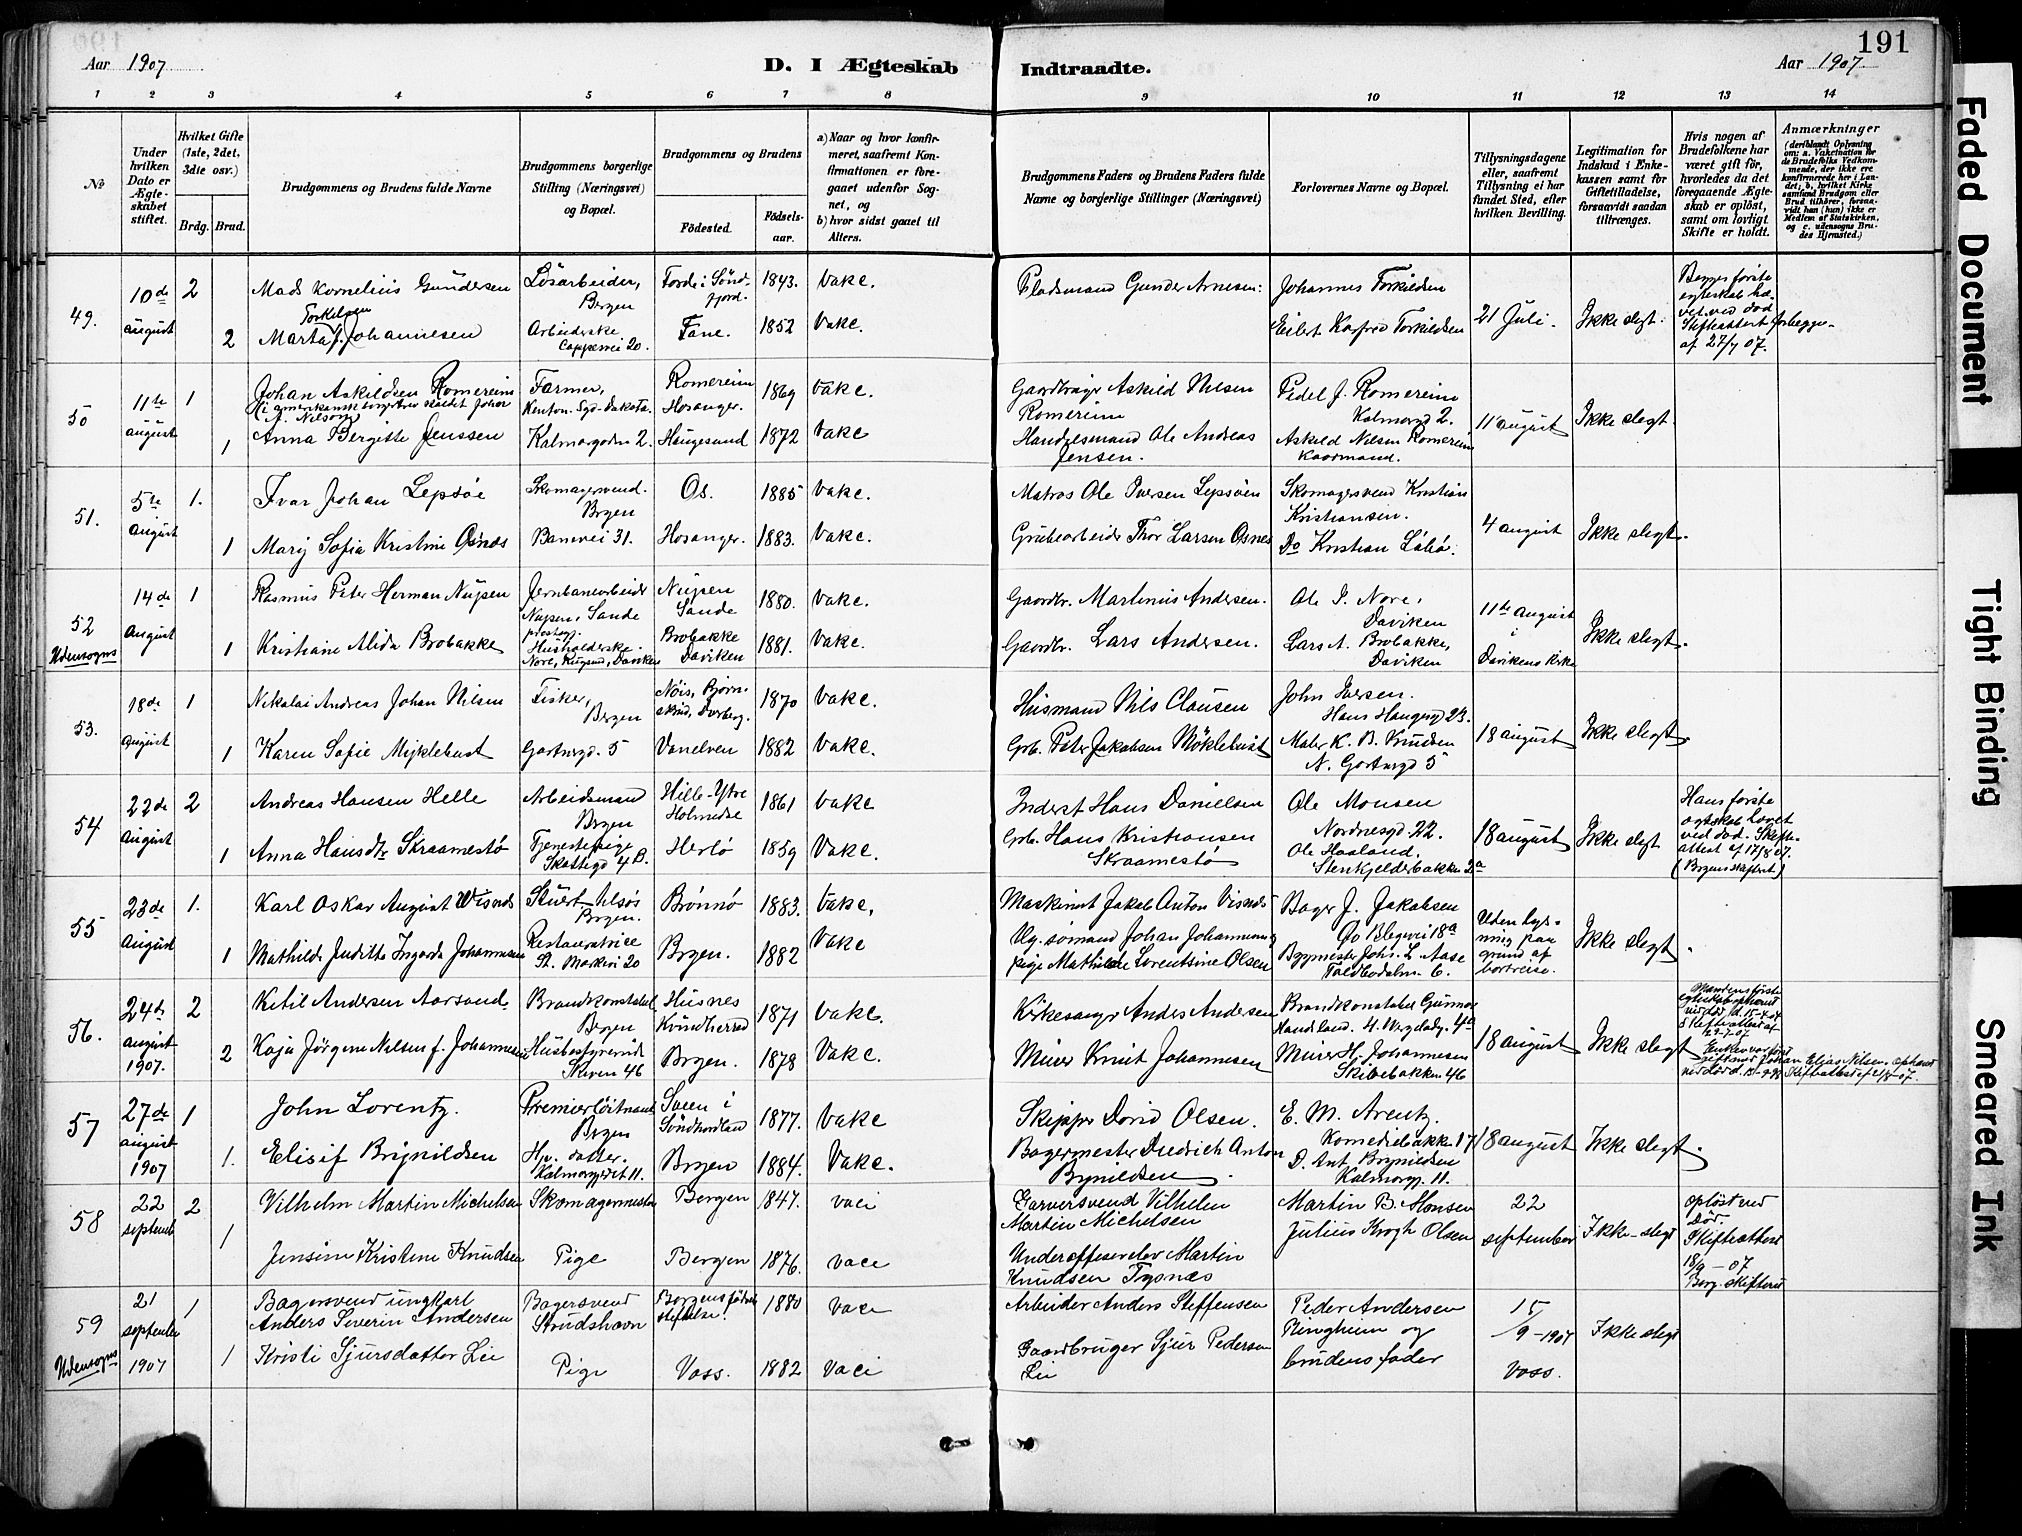 190
Aar 1907
D. I Ægteskab
1 2 3 4 5 6 7 8
No
Under hvilken Dato er Ægteskabet stiftet.
Hvilket Gifte (1ste, 2det, 3die osv.)
Brdg. Brud.
Brudgommens og Brudens fulde Navne
Brudgommens borgerlige Stilling (Næringsvei) og Bopæl.
Brudgommens og Brudens
Fødested.
Fødselsaar.
a) Naar og hvor konfirmeret, saafremt Konfirmationen er foregaaet udenfor Sognet, og
b) hvor sidst gaaet til Alters.
49.
10de august
2
Mads Kornelius Gundersen
Løsarbeider, Bergen
Førde i Søndfjord.
1843.
Vake.
2
Torkelsen
Marta f. Johannesen
Arbeiderske
Fane.
1852
Vake.
50
11te august
1
Johan Askildsen Romereim
Farmer,
Romereim Hosanger.
1869
Vake.
1
Anna Bergitte Jenssen
Kalmargaden 2.
Haugesund
1872
Vake
51.
5te august
1.
Ivar Johan Lepsøe
Skomagersvend. Brgen
Os.
1885
Vake.
1
Mary Sofia Kristine Osnes
Banevei 31.
Hosanger.
1883.
Vake.
52
Udensogns
14de august
1
Rasmus Peter Herman Nupen
Jernbanearbeider
Nupen, Sande
Nupen Sande
1880.
Vake.
1
Kristiane Alida Brobakke
Husholderske.
Brobakke Daviken
1881.
Vake.
53.
18de august
1
Nikolai Andreas Johan Nilsen
Fisker, Bergen
1870
Vake.
1
Karen Sofie Myklebust
Gartnergd. 5
Vanelven
1882
Vake.
54
22de august
2
Andreas Hansen Helle
Arbeidsmand Brgen
Hille-Ytre Holmedal
1861
Vake
1
Anna Hansdtr Skraamestø
Tjenestepige
Herlø
1859
Vake.
55
23de august
1.
Karl Oskar August Wisnes
Brgen.
Brønnø
1883.
Vake.
1
Mathilde Juditte Ingarda Johannesen
St. Markevei 20
Brgen.
1882
Vake
56.
24de august 1907.
2
Ketil Andersen Aarsand
Brandkonstabel Bergen
Husnes Kvindherred
1871
Vake.
2
Kaja Jørgine Nilsen f. Johannesen
Husbestyrerinde Skiven 46
Brgen.
1878
Vake.
57
27de august 1907
1
John Lorentz.
Premierløitnant Brgen
Sveen i Søndhordland
1877.
Vake
1.
Elisif Brynildsen
Hj. datter.
Kalmargadet 11.
Brgen
1884.
Vake.
58
22 septemb
2
Vilhelm Martin Michelsen
Skomagermester
Bergen
1847.
vaci
1
Jensine Kristine Knudsen
Pige
Bergen
1876.
vace
59
Udensogns
21 september 1907
1
Bagersvend ungkarl
Anders Severin Andersen
Bagersvend
Strudshavn
Bergens fødselsstiftelse!
1880
Vaci
1
Kristi Sjursdatter Lie
Pige
Voss.
1882
Vaci
Indtraadte.
191
Aar 1907.
9 10 11 12 13 14
Brudgommens Faders og Brudens Faders fulde Navne og borgerlige Stillinger (Næringsvei)
Forlovernes Navne og Bopæl.
Tillysningsdagene eller, saafremt Tillysning ei har fundet Sted, efter hvilken Bevilling.
Legitimation for Indskud i Enkekassen samt for Giftetilladelse, forsaavidt saadan tiltrænges.
Hvis nogen af Brudefolkene har været gift før, hvorledes da det foregaaende Ægteskab er opløst, samt om lovligt Skifte er holdt.
Anmærkninger (deriblandt Oplysning om: a. Vakcination for de Brudefolks Vedkommende, der ikke ere konfirmerede her i Landet; b. hvilket Kirkesamfund Brudgom eller Brud tilhører, forsaavidt han (hun) ikke er Medlem af Statskirken, og c. udensogns Brudes Hjemsted.)
Pladsmand Gunder Arnesen.
Johannes Torkildsen
Eilert Kasfred Torkildsen
21 Juli.
Ikke slegt.
Begges første egteskab hævet ved død
Skifteattest for begge af 27/7 07.
Gaardbruger Askild Nilsen Romereim
Handelsmand Ole Andreas Jensen.
Pedel J. Romereim
Kalmargd 2.
Askild Nilsen Romereim
11 august
Ikke slegt.
Matros Ole Iversen Lepsøen
Grubearbeider Thor Larsen Osnes
Skomagersvend Kristian Kristiansen.
Do Kristian
4 august
Ikke slegt.
Gaardbr. Martinus Andersen.
Gaardbr. Lars Andersen.
Ole P. Nore, Daviken
Lars A. Brobakke, Daviken
11te august i Davikens Kirke
Ikke slegt.
Husmand Nils Clausen
Grb. Peter Jakobsen Møklebust
John Iversen.
Hans Haugesgd 23.
Maler K. B. Knudsen
N. Gartnergd 5
18 august
Ikke slegt.
Inderst Hans Danielsen
Grb. Hans Kristiansen Skraamestø
Ole Monsen
Nordnesgd. 22.
Ole Haaland,
Stenkjelderbakken 2a
18 august
Ikke slegt
Hans første egteskab hævet ved død. Skifteattest af 17/8 07.
(Brgens skifteret)
Maskinist Jakob Anton Visnes
Ug. sømand Johan Johannesen og
pige Mathilde Lorentsine Olsen
Bager J. Jakobsen
Øv Blegevei 18a
Bygmester Johs. L. Aase
Toldbodalm. 6.
Uden lysning paa grund af bortreise.
Ikke slegt.
Kirkesanger Anders Andersen
Murer Knut Johannesen
Brandkonstabel Gunnar
H. Wergelandsg. 4a
Murer H. Johannesen
Skivebakken 46
18 august
Ikke slegt
Skipper David Olsen.
Bagermester Diedrich Anton Brynildsen.
E. M. Arentz.
Komediebakken 17
D. Ant. Brynildsen
Kalmargt. 11.
18 august
Ikke slegt.
Garversvend Vilhelm Martin Michelsen
Underofficerelev Martin Knudsen Tysnæs
Martin B. Monsen
Julius Krogh Olsen
22 september
Ikke-slegt
opløst ved død-
Skifteattest 18/9 - 07
Berg. skifteret
Arbeider Anders Steffensen
Gaardbruger Sjur Pedersen Lie
Peder Andersen Ringheim og brudens fader
15/9-1907
Voss.
Ikke slegt
Faded Document
Tight Binding
Smeared Ink